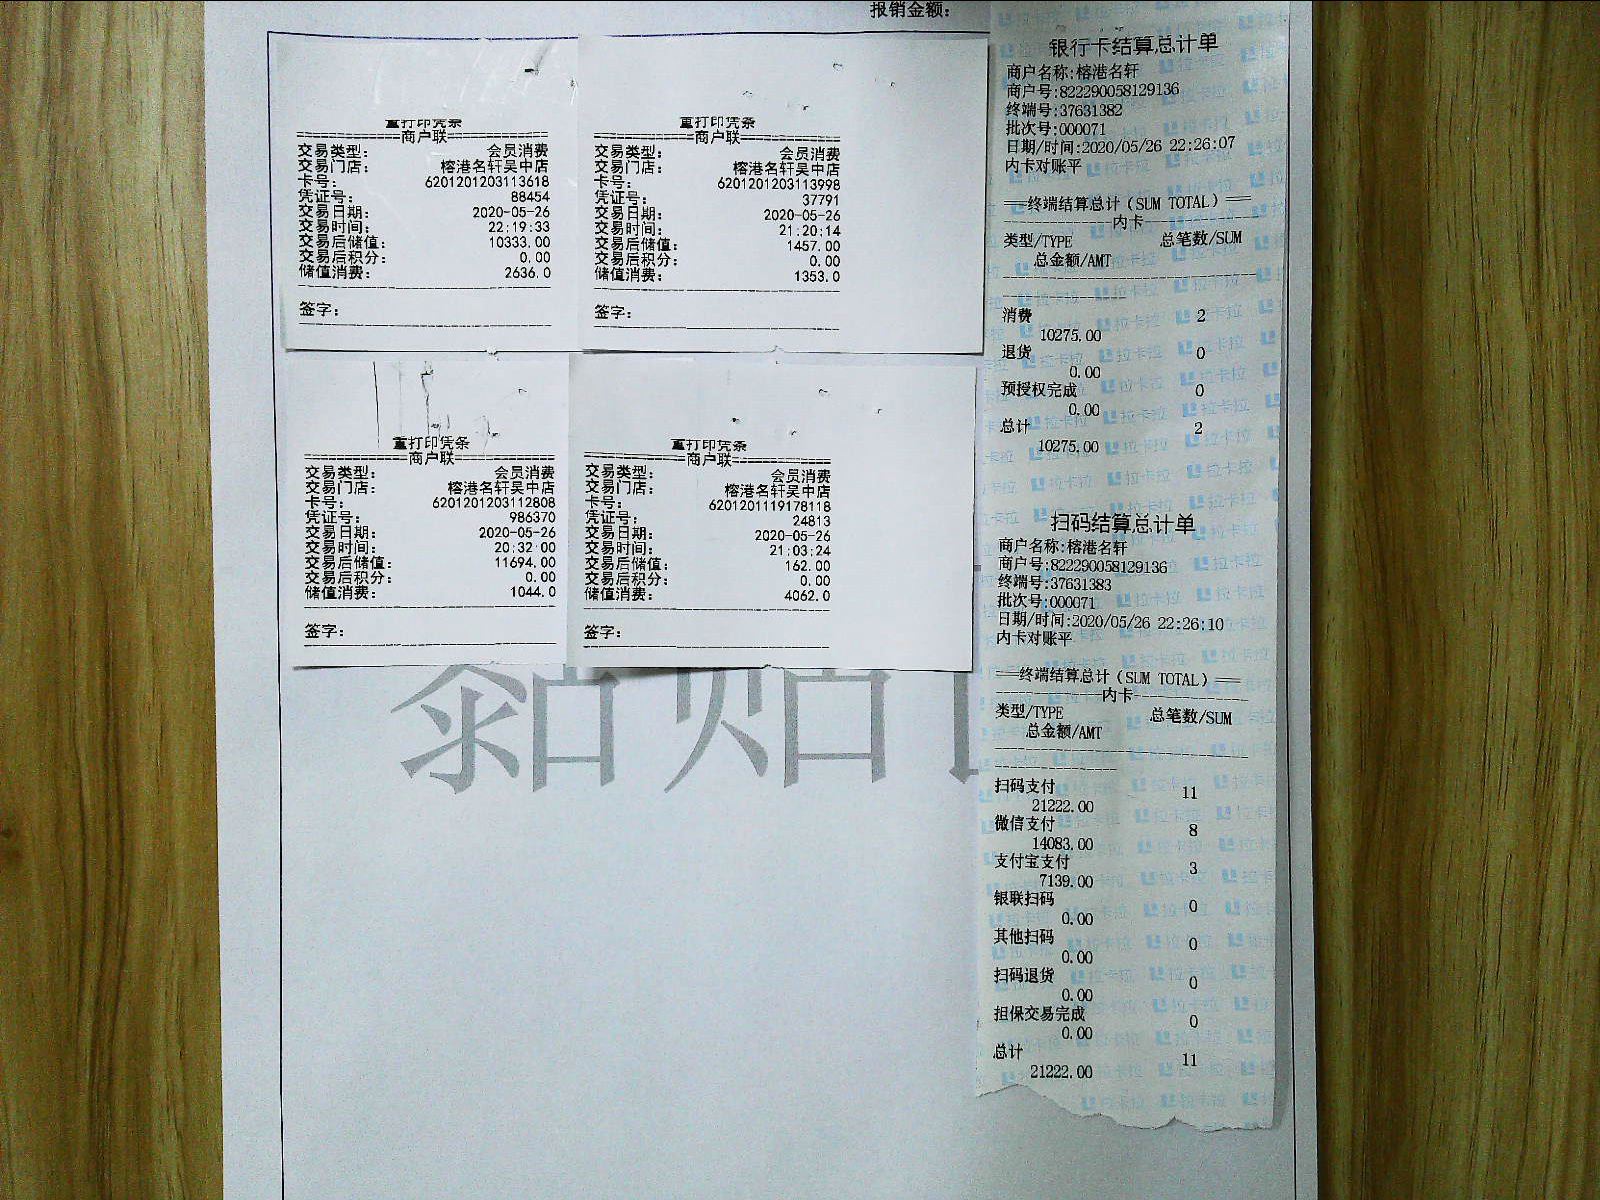 报销金额：
重打印凭条
商户联
交易类型： 会员消费
交易门店： 榕港名轩吴中店
卡号： 6201201203113618
凭证号： 88454
交易日期： 2020-05-26
交易时间： 22:19:33
交易后储值： 10333.00
交易后积分： 0.00
储值消费： 2636.0
签字：
重打印凭条
商户联
交易类型： 会员消费
交易门店： 榕港名轩吴中店
卡号： 6201201203113998
凭证号： 37791
交易日期： 2020-05-26
交易时间： 21:20:14
交易后储值： 1457.00
交易后积分： 0.00
储值消费： 1353.0
签字：
重打印凭条
商户联
交易类型： 会员消费
交易门店： 榕港名轩吴中店
卡号： 6201201203112808
凭证号： 986370
交易日期： 2020-05-26
交易时间： 20:32:00
交易后储值： 11694.00
交易后积分： 0.00
储值消费： 1044.0
签字：
重打印凭条
商户联
交易类型： 会员消费
交易门店： 榕港名轩吴中店
卡号： 6201201119178118
凭证号： 24813
交易日期： 2020-05-26
交易时间： 21:03:24
交易后储值： 162.00
交易后积分： 0.00
储值消费： 4062.0
签字：
银行卡结算总计单
商户名称:榕港名轩
商户号:822290058129136
终端号:37631382
批次号:000071
日期/时间:2020/05/26 22:26:07
内卡对账平
终端结算总计（SUM TOTAL）
内卡
类型/TYPE 总笔数/SUM
总金额/AMT
消费 2
10275.00
退货 0
0.00
预授权完成 0
0.00
总计 2
10275.00
扫码结算总计单
商户名称:榕港名轩
商户号:822290058129136
终端号:37631383
批次号:000071
日期/时间:2020/05/26 22:26:10
内卡对账平
终端结算总计（SUM TOTAL）
内卡
类型/TYPE 总笔数/SUM
总金额/AMT
扫码支付 11
21222.00
微信支付 8
14083.00
支付宝支付 3
7139.00
银联扫码 0
0.00
其他扫码 0
0.00
扫码退货 0
0.00
担保交易完成 0
0.00
总计 11
21222.00
拉卡拉